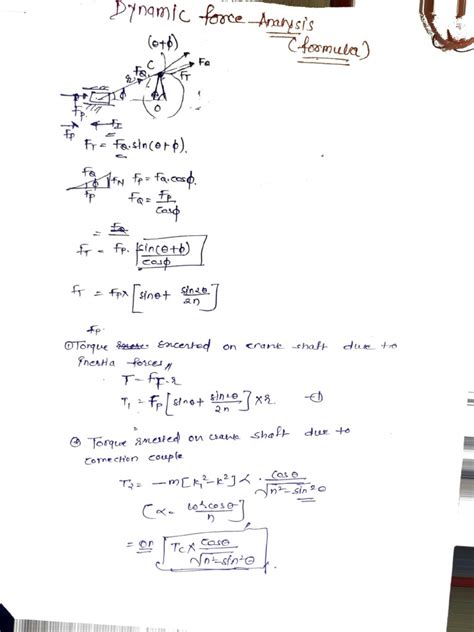 Dynamic force Analysis
(formula)
(θ+ϕ)
C
FQ
FQ
FT
r
ϕ
θ
O
Fp
Fp
FI
FT = FQ.sin(θ+ϕ).
FQ
FN
Fp
ϕ
Fp = FQ.cosϕ.
FQ = Fp/cosϕ
= FQ
FT = Fp. [sin(θ+ϕ)/cosϕ]
FT = Fp x [sinθ + sin2θ/2n]
Fp.
① Torque excerted on crank shaft due to
Inertia forces,,
T = FT.r
T1 = Fp [sinθ + sin2θ/2n] x r —①
② Torque exerted on crank shaft due to
correction couple
T2 = -m[k1²-k²] α . cosθ/√n²-sin²θ
[α = ω².cosθ/n]
= on [Tc x cosθ/√n²-sin²θ].